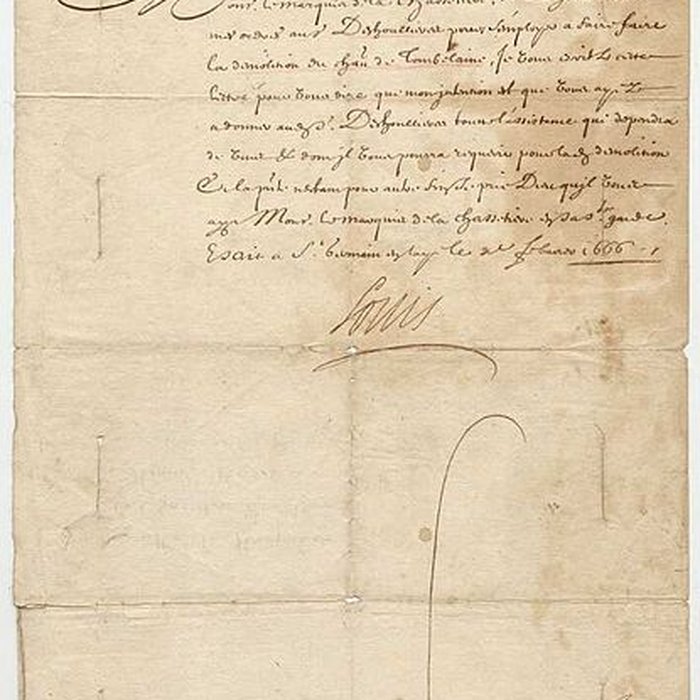 Mons.r le marquis de la Chasserie,
mes ordres au s.r Deshoullieres pour s'employer a faire faire
la demolition du chau de Tombelaine, Je vous escris cette
lettre pour vous dire que mon intention est que vous ayez
a donner aud s.r Deshoullieres toute l'assistance qui dependra
de vous et dont jl vous pourra requerir pour lad demolition
Et la pnte n'estant pour autre fin Je prie Dieu qu'jl vous
ayt Mons.r le marquis de la Chasserie en sa s.te garde.
Escrit a S.t Germain en laye le feburier 1666
Louis